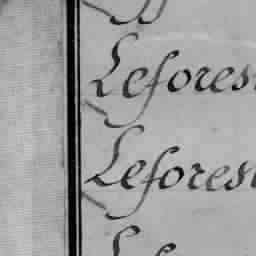 Lefores
Lefores